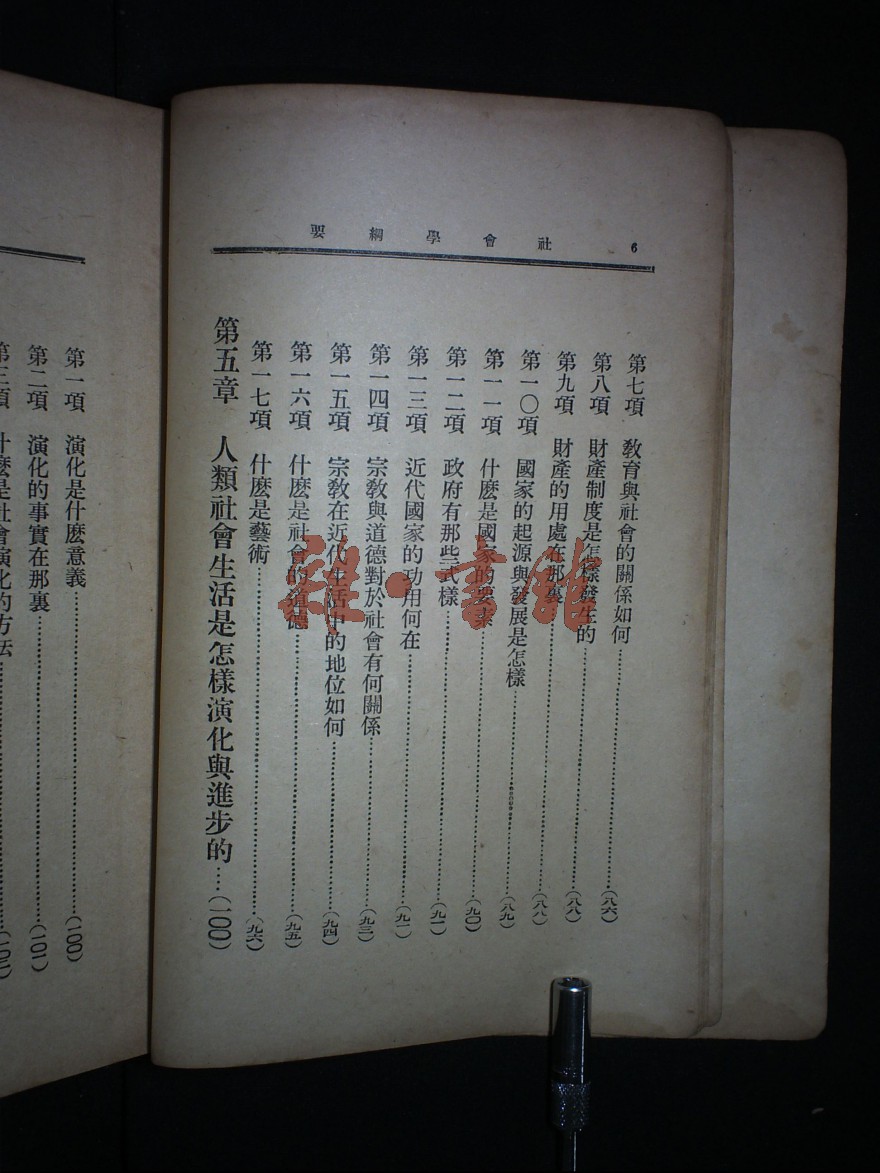 6 社會學綱要
第七項 教育與社會的關係如何……(八六)
第八項 財產制度是怎樣發生的……(八八)
第九項 財產的用處在那裏……(八八)
第一〇項 國家的起源與發展是怎樣……(八九)
第一一項 什麼是國家的要素……(九〇)
第一二項 政府有那些式樣……(九一)
第一三項 近代國家的功用何在……(九一)
第一四項 宗教與道德對於社會有何關係……(九三)
第一五項 宗教在近代生活中的地位如何……(九四)
第一六項 什麼是社會的道德……(九五)
第一七項 什麼是藝術……(九六)
第五章 人類社會生活是怎樣演化與進步的……(一〇〇)
第一項 演化是什麼意義……(一〇〇)
第二項 演化的事實在那裏……(一〇一)
第三項 什麼是社會演化的方法
雜·書館